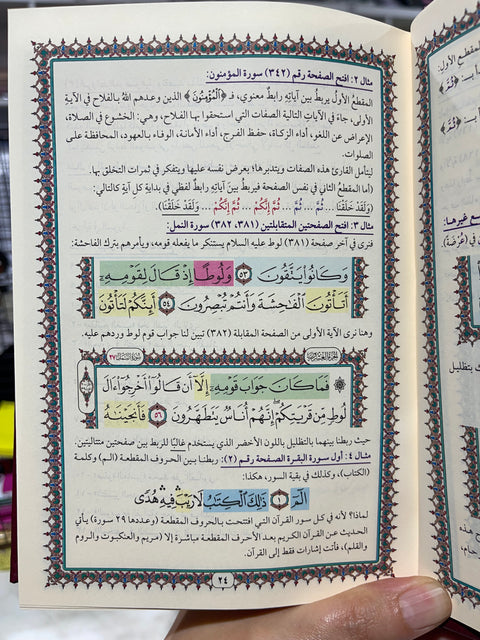 مثال ٢: افتح الصفحة رقم (٣٤٢) سورة المؤمنون:
المقطعُ الأولُ يربطُ بين آياتِهِ رابطٌ معنوي، فـ ﴿ٱلْمُؤْمِنُونَ﴾ الذين وعدهم اللهُ بالفلاح في الآيةِ
الأولى، جاءَ في الآياتِ التاليةِ الصفات التي استحقوا بها الفلاح، وهي: الخشوع في الصلاة،
الإعراض عن اللغو، أداء الزكاة، حفظ الفرج، أداء الأمانة، الوفاء بالعهود، المحافظة على
الصلوات.
ليتأمل القارئ هذه الصفات ويتدبرها؛ بعرض نفسه عليها ويتفكر في ثمرات التخلق بها.
(أما) المقطعُ الثاني في نفس الصفحة فيربطُ بينَ آياتِهِ رابطٌ لفظي في بدايةِ كل آيةٍ كالتالي:
(وَلَقَدْ خَلَقْنَا... ثُمَّ ... ثُمَّ إِنَّكُمْ ... ثُمَّ إِنَّكُمْ ... وَلَقَدْ خَلَقْنَا).
مثال ٣: افتح الصفحتين المتقابلتين (٣٨١، ٣٨٢) سورة النمل:
فنرى في آخر صفحة (٣٨١) لوط عليه السلام يستنكر ما يفعله قومه، ويأمرهم بترك الفاحشة:
وَكَانُوا۟ يَتَّقُونَ ٥٣ وَلُوطًا إِذْ قَالَ لِقَوْمِهِۦٓ
أَتَأْتُونَ ٱلْفَٰحِشَةَ وَأَنتُمْ تُبْصِرُونَ ٥٤ أَئِنَّكُمْ لَتَأْتُونَ
وهنا نرى الآية الأولى من الصفحة المقابلة (٣٨٢) تبين لنا جواب قوم لوط وردهم عليه.
الجزء العشرون
سورة النمل ٢٧
۞ فَمَا كَانَ جَوَابَ قَوْمِهِۦٓ إِلَّآ أَن قَالُوٓا۟ أَخْرِجُوٓا۟ ءَالَ
لُوطٍ مِّن قَرْيَتِكُمْ إِنَّهُمْ أُنَاسٌ يَتَطَهَّرُونَ ٥٦ فَأَنجَيْنَٰهُ
حيث ربطنا بينهما بالتظليل باللون الأخضر الذي يستخدم غالبًا للربط بين صفحتين متتاليتين.
مثال ٤: أول سورة البقرة الصفحة رقم (٢): ربطنا بين الحروف المقطعة (الم) وكلمة
(الكتاب)، وكذلك في بقية السور، هكذا:
الٓمٓ ١ ذَٰلِكَ ٱلْكِتَٰبُ لَا رَيْبَ فِيهِ هُدًى
لماذا؟ لأنه في كل سور القرآن التي افتتحت بالحروف المقطعة (وعددها ٢٩ سورة) يأتي
الحديث عن القرآن الكريم بعد الأحرف المقطعة مباشرة إلا (مريم والعنكبوت والروم
والقلم)، فأتت إشارات فقط إلى القرآن.
٢٤